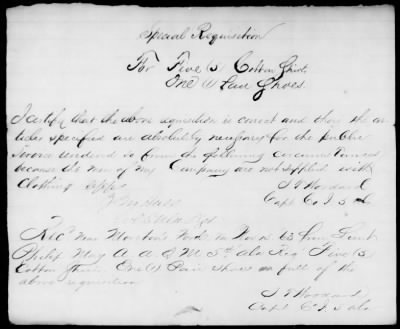 Special Requisition
For Five (5) Cotton Shirts
One (1) Pair Shoes.
I certify that the above requisition is correct and that the ar
ticles specified are absolutely necessary for the public
service rendered so from the following circumstances
because the men of my Company are not supplied with
Clothing
J T Woodard
Capt Co I 5 ala
Rec'd near Morton's Ford in Nov 63 from Lieut
Philip May A. A. Q M 5th ala Reg Five (5)
Cotton Shirts One (1) Pair Shoes in full of the
above requisition
J T Woodard
Capt Co I 5 ala